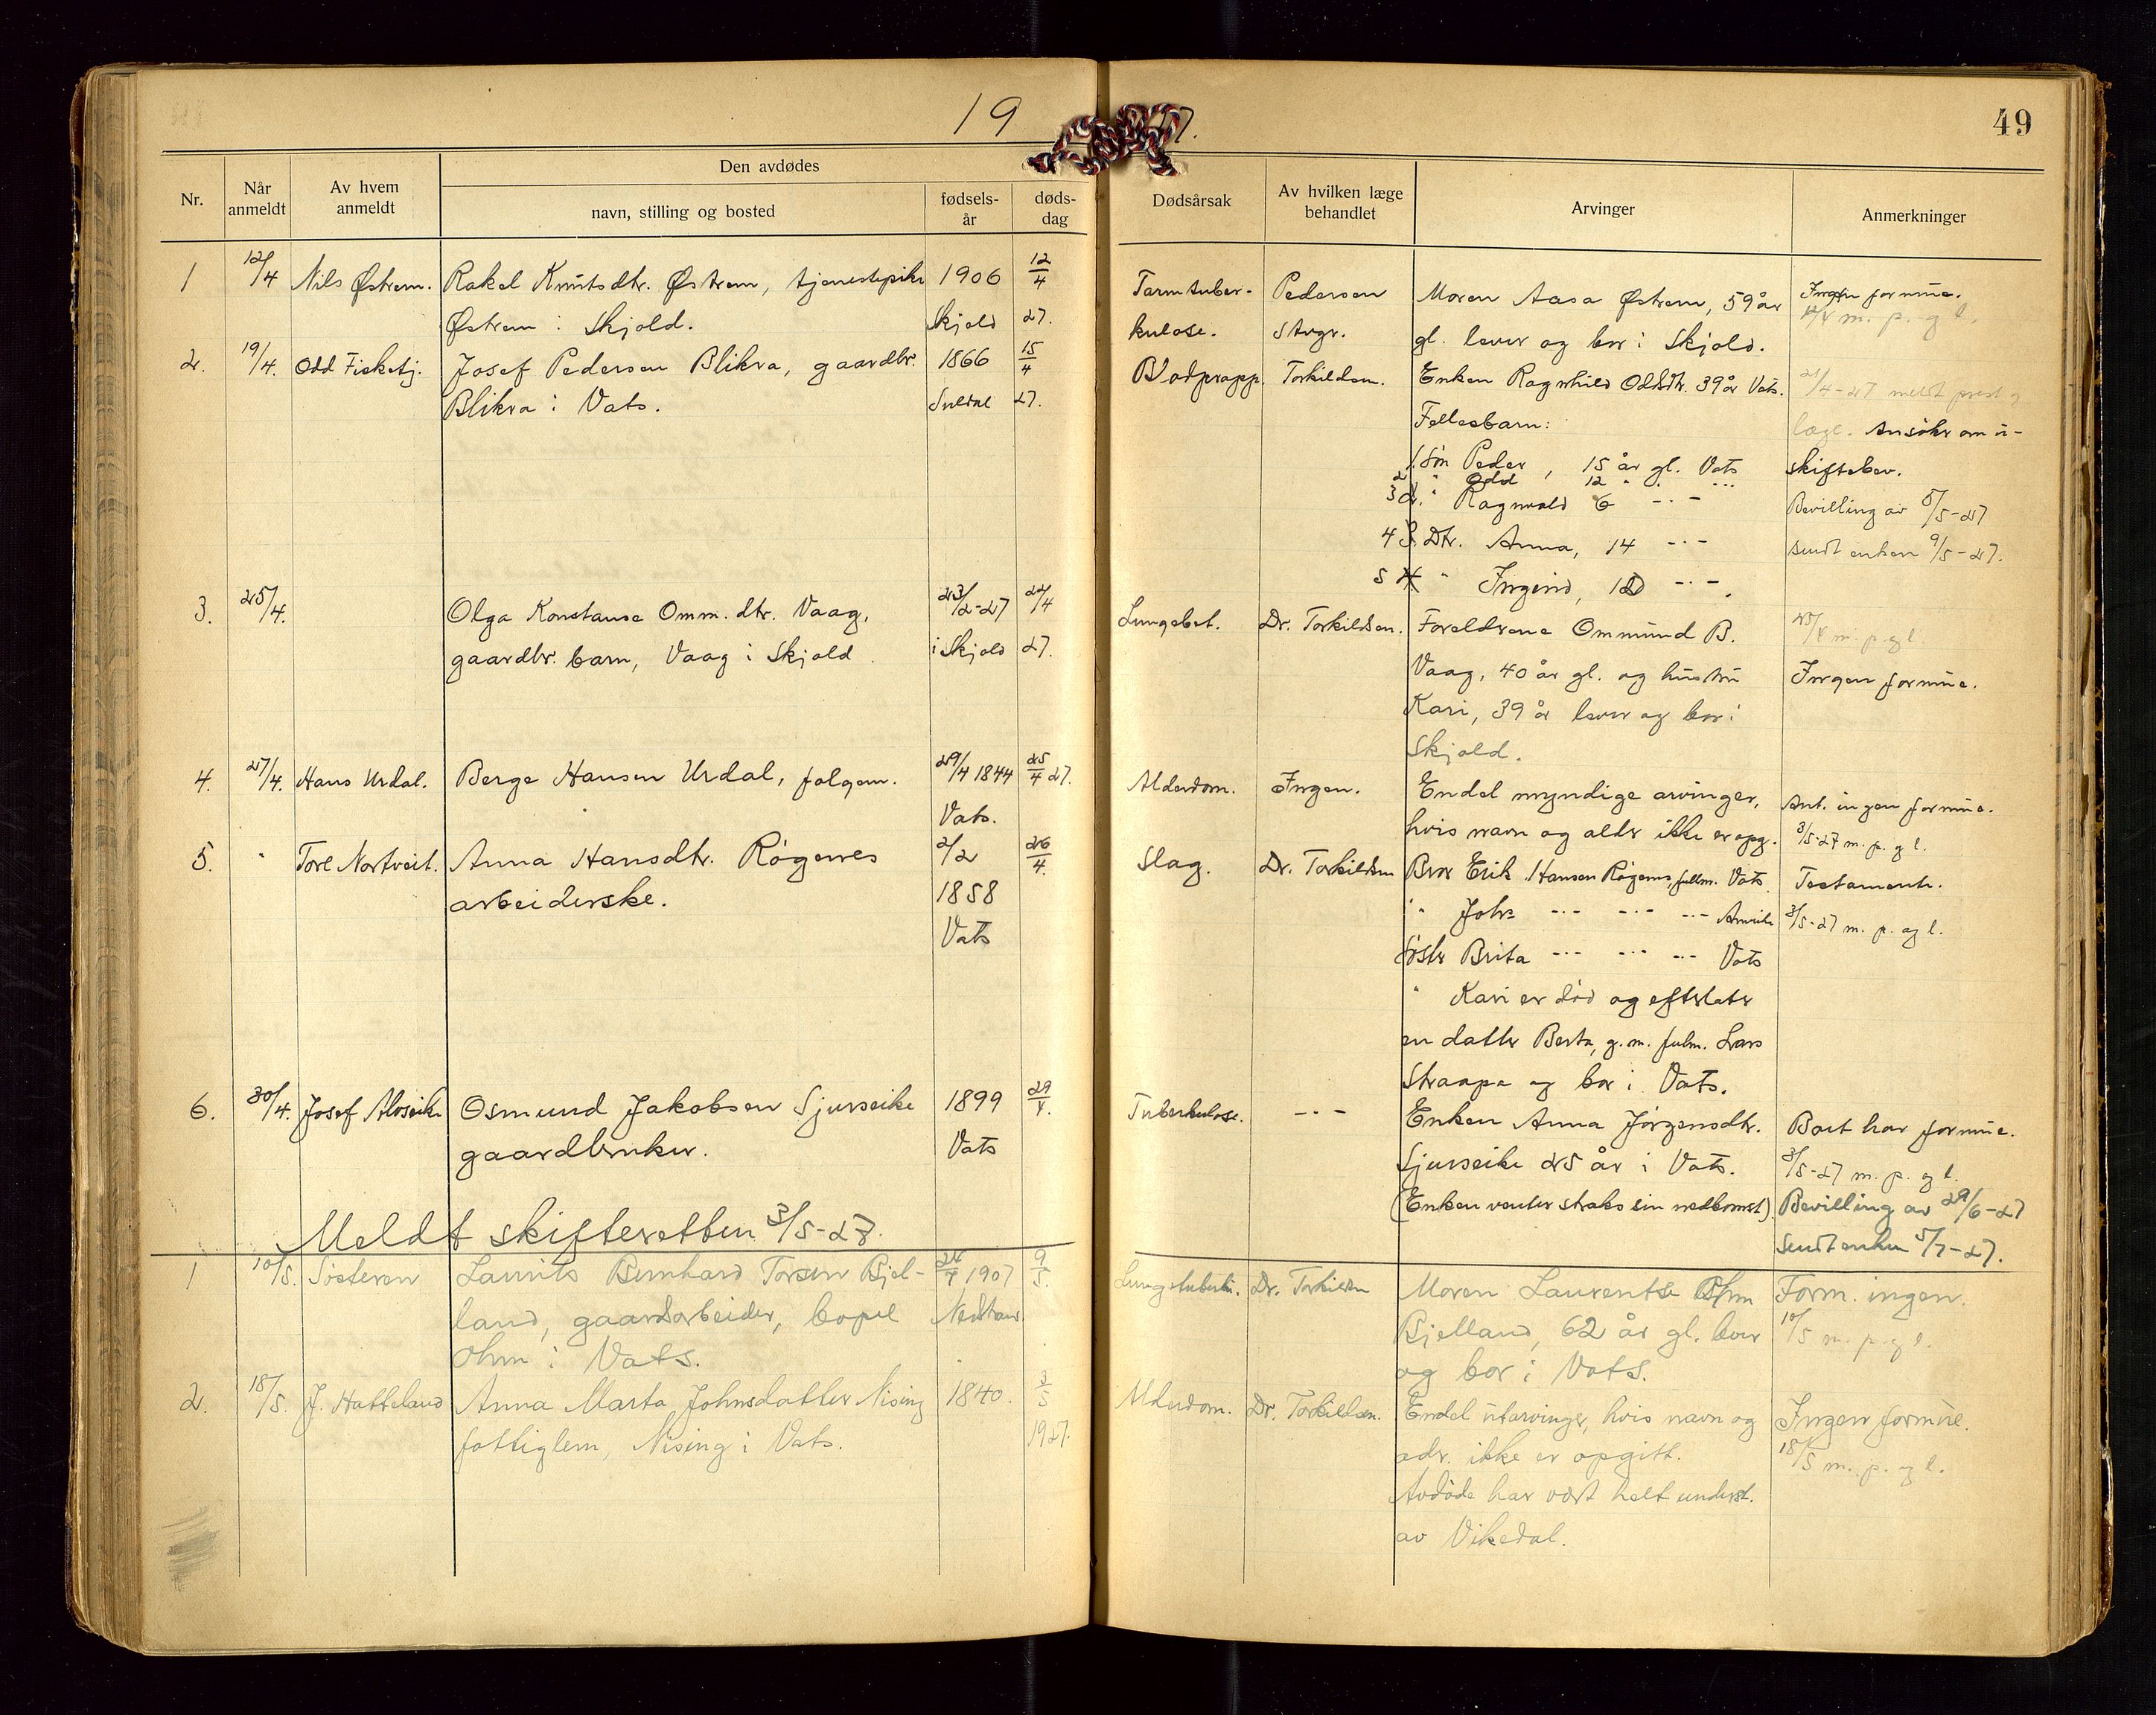 19 7.
49
Nr.
Når anmeldt
Av hvem anmeldt
Den avdødes
navn, stilling og bosted
fødsels-år
døds-dag
Dødsårsak
Av hvilken læge behandlet
Arvinger
Anmerkninger
1 12/4 Nils Østrem. Rakel Knutsdtr. Østrem, tjenestepike 1906 12/4 Tarmtuber- Pedersen Moren Aasa Østrem, 59 år Ingen formue.
Østrem i Skjold. Skjold 27. kulose. Stvgr. gl. lever og bor i Skjold. m. p. og l.
2. 19/4. Odd Fisketj. Josef Pedersen Blikra, gaardbr. 1866 15/4 Blodpropp. Torkildsen. Enken Ragnhild Oddsdtr. 39 år Vats. 21/4-27 meldt prest og
Blikra i Vats. Suldal 27. Fellesbarn: læge. Ansøkr om u-
1. Søn Peder, 15 år gl. Vats skiftebev.
2 " Odd 12 " "
3 " Ragnvald 6 -"- Bevilling av 5/5-27
4 3. Dtr. Anna, 14 -"- sendt enken 9/5-27.
5 4 " Ingeird, 12 -"-.
3. 25/4. Olga Konstanse Omm. dtr. Vaag, 23/2-27 22/4 Lungebet. Dr. Torkildsen. Foreldrene Ommund B. 25/4 m. p. og l
gaardbr. barn, Vaag i Skjold. i Skjold 27. Vaag, 40 år gl. og hustru Ingen formue.
Kari, 39 år lever og bor i
Skjold.
4. 27/4. Hans Urdal. Berge Hansen Urdal, folgem. 29/4 1844 25/4 27. Alderdom. Ingen. Endel myndige arvinger, Ant. ingen formue.
Vats. hvis navn og alder ikke er opg. 3/5-27 m. p. og l.
5. " Tore Nortveit. Anna Hansdtr. Røgenes 2/2 26/4. Slag. Dr. Torkildsen Bror Erik Hansen Røgenes, fullm. Vats. Testamente.
arbeiderske. 1858 " Johs -"- -"- -"- Amerika 3/5-27 m. p. og l.
Vats Søster Brita -"- -"- -"- Vats
" Kari er død og efterlater
en datter Berta, g. m. fulm. Lars
Straapa og bor i Vats.
6. 30/4. Josef Alvseike Osmund Jakobsen Sjurseike 1899 29/4. Tuberkulose. -"- Enken Anna Jørgensdtr. Boet har formue.
gaardbruker. Vats Sjurseike 25 år i Vats. 3/5-27 m. p. og l.
(Enken venter straks sin nedkomst). Bevilling av 29/6-27
Meldt skifteretten 3/5-27. Sendt enken 5/7-27.
1 10/5. Søsteren Laurits Bernhard Torsen Bjel- 24/4 1907 9/5. Lungetuberku. Dr. Torkildsen Moren Laurentse Ohm Form. ingen.
land, gaardsarbeider, bopel Nedstrand Bjelland, 62 år gl. lever 10/5 m. p. og l.
Ohm i Vats. og bor i Vats.
2. 18/5. J. Hatteland Anna Marta Johnsdatter Nising 1840. 3/5 Alderdom. Dr. Torkildsen. Endel utarvinger, hvis navn og Ingen formue.
fattiglem, Nising i Vats. 1927. adr. ikke er opgitt. 18/5 m. p. og l.
Avdøde har vært helt underst.
av Vikedal.